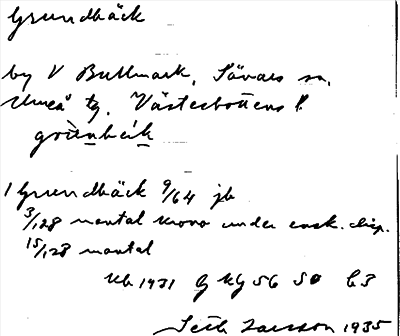 Grundbäck
by V Bullmark, Sävars sn,
Umeå tg. Västerbottens l.
1 Grundbäck 9/64 jb
3/128 mantal krono under ensk. disp.
15/128 mantal
Ub 1931 G kg 56 50 b3
Seth Larsson 1935